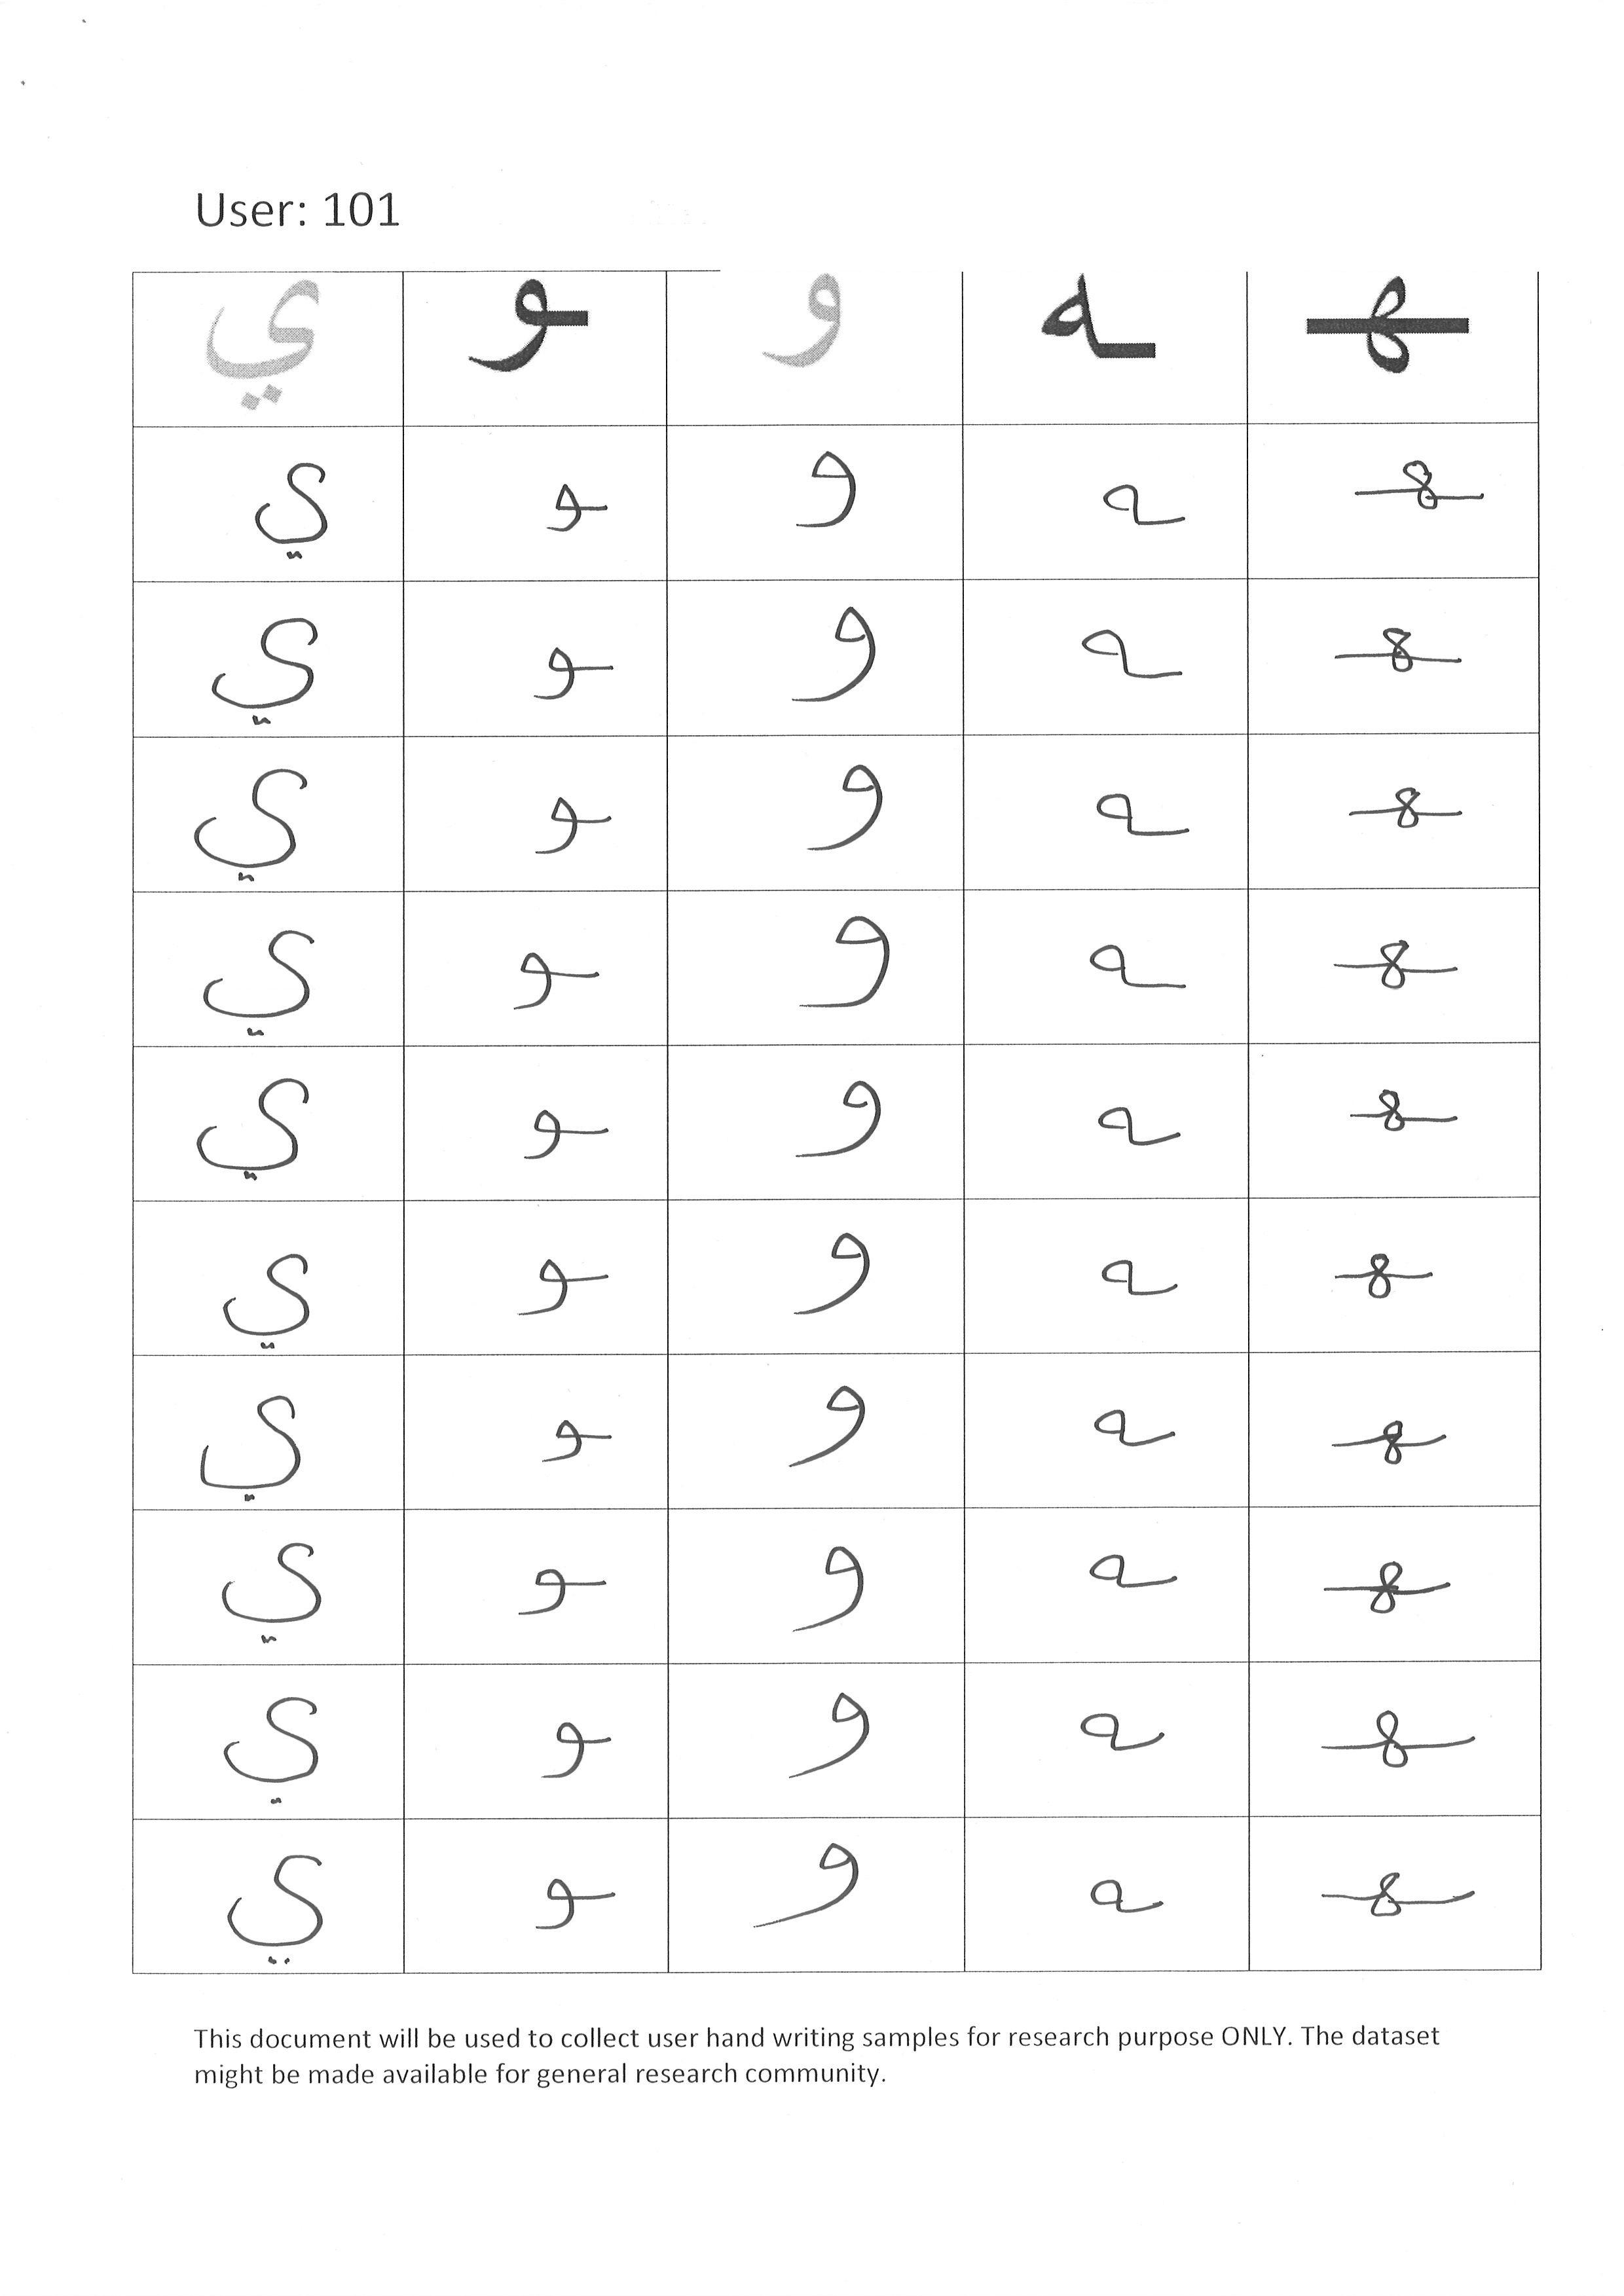 User: 101
ي ـو و ـه ـهـ
ي ـو و ـه ـهـ
ي ـو و ـه ـهـ
ي ـو و ـه ـهـ
ي ـو و ـه ـهـ
ي ـو و ـه ـهـ
ي ـو و ـه ـهـ
ي ـو و ـه ـهـ
ي ـو و ـه ـهـ
ي ـو و ـه ـهـ
ي ـو و ـه ـهـ
This document will be used to collect user hand writing samples for research purpose ONLY. The dataset
might be made available for general research community.